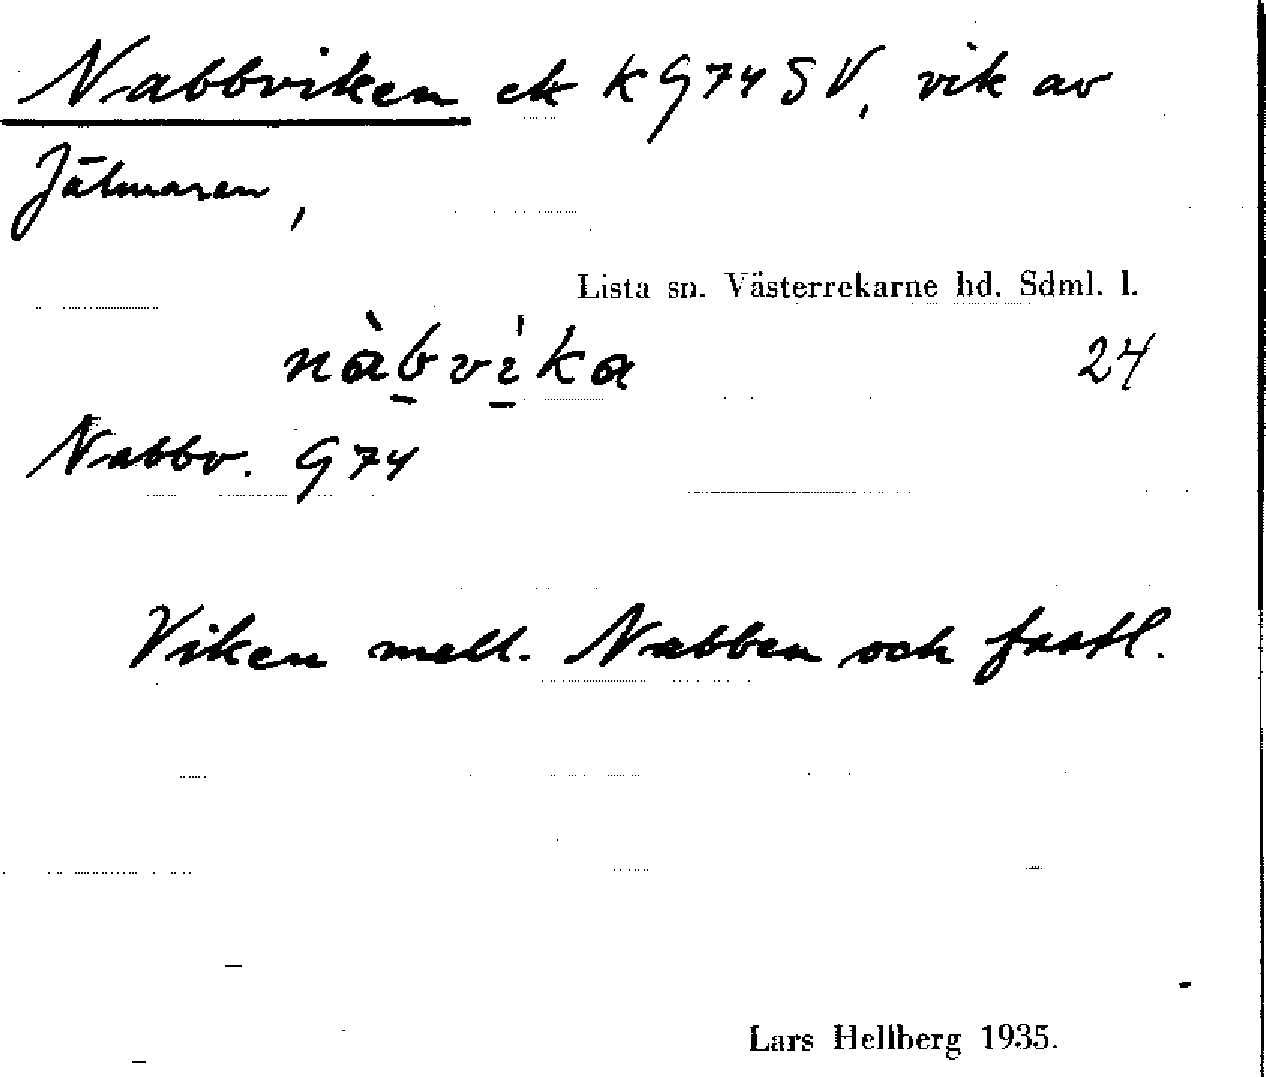 Nabbviken ek K G74 SV, vik av
Jälmaren,
Lista sn. Västerrekarne hd. Sdml. l.
nàb̠vi̠̍ka 24
Nabbv. G74
Viken mell. Nabben och fastl.
Lars Hellberg 1935.